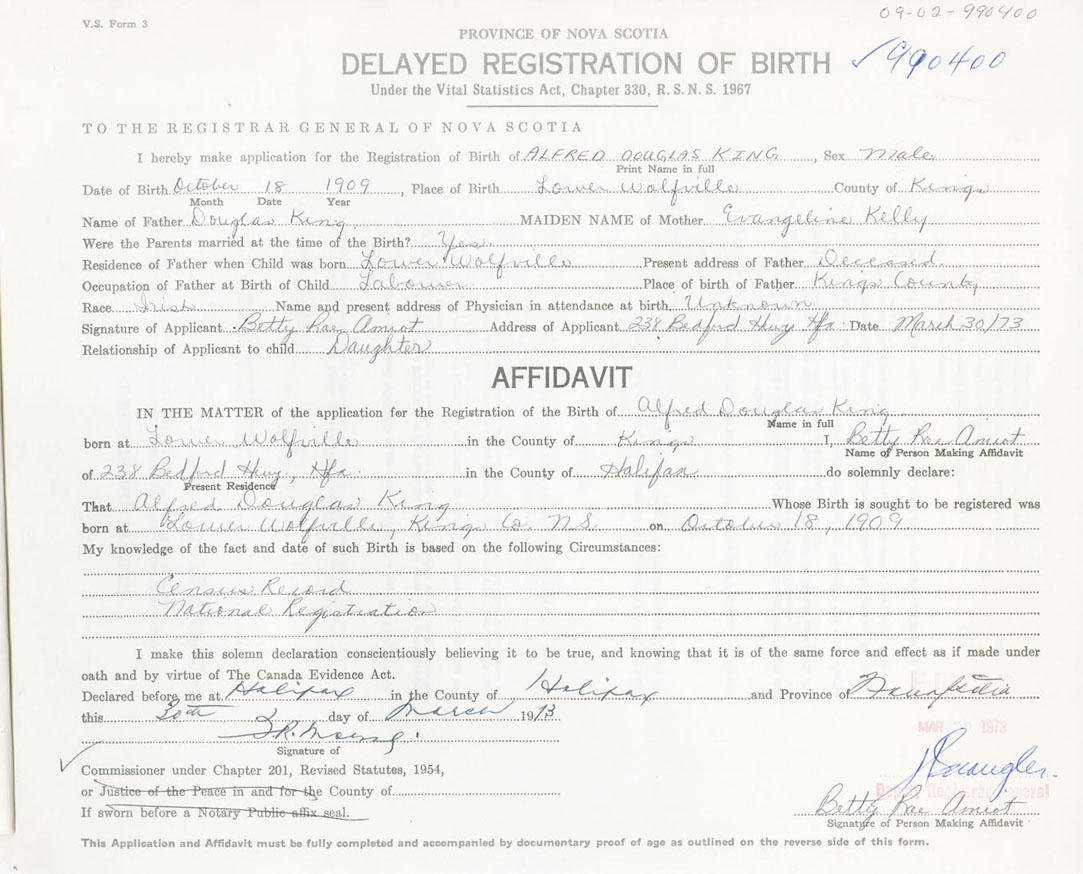 V.S. Form 3
09-02-990400
PROVINCE OF NOVA SCOTIA
DELAYED REGISTRATION OF BIRTH ✓990400
Under the Vital Statistics Act, Chapter 330, R.S.N.S. 1967
TO THE REGISTRAR GENERAL OF NOVA SCOTIA
I hereby make application for the Registration of Birth of ALFRED DOUGLAS KING, Sex Male
Print Name in full
Date of Birth October 18 1909, Place of Birth Lower Wolfville County of Kings
Month Date Year
Name of Father Douglas King MAIDEN NAME of Mother Evangeline Kelly
Were the Parents married at the time of the Birth? Yes
Residence of Father when Child was born Lower Wolfville Present address of Father Deceased
Occupation of Father at Birth of Child Labourer Place of birth of Father Kings County
Race Irish Name and present address of Physician in attendance at birth Unknown
Signature of Applicant Betty Rae Amiot Address of Applicant 238 Bedford Hwy Hfx Date March 30/73
Relationship of Applicant to child Daughter
AFFIDAVIT
IN THE MATTER of the application for the Registration of the Birth of Alfred Douglas King
Name in full
born at Lower Wolfville in the County of Kings I, Betty Rae Amiot
Name of Person Making Affidavit
of 238 Bedford Hwy, Hfx in the County of Halifax do solemnly declare:
Present Residence
That Alfred Douglas King Whose Birth is sought to be registered was
born at Lower Wolfville, Kings Co. N.S. on October 18, 1909
My knowledge of the fact and date of such Birth is based on the following Circumstances:
Census Record
National Registration
I make this solemn declaration conscientiously believing it to be true, and knowing that it is of the same force and effect as if made under
oath and by virtue of The Canada Evidence Act.
Declared before me at Halifax in the County of Halifax and Province of Nova Scotia
this 30th day of March 1973
MAR 1973
Signature of
Commissioner under Chapter 201, Revised Statutes, 1954,
or Justice of the Peace in and for the County of
Deputy Registrar General
If sworn before a Notary Public affix seal.
Betty Rae Amiot
Signature of Person Making Affidavit
This Application and Affidavit must be fully completed and accompanied by documentary proof of age as outlined on the reverse side of this form.